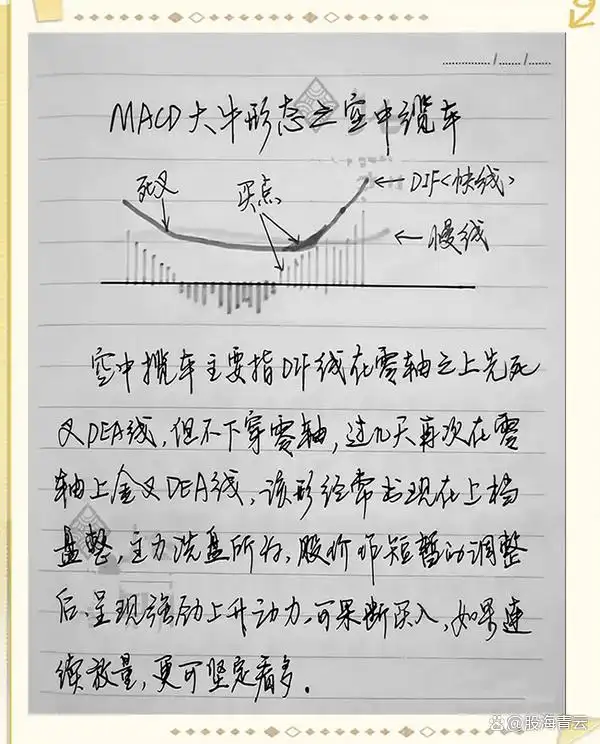 ....../....../......
MACD大牛形态之空中缆车
死叉
买点
← DIF<快线>
← 慢线
空中揽车主要指DIF线在零轴之上先死
叉DEA线，但不下穿零轴，过几天再次在零
轴上金叉DEA线，该形经常出现在上档
盘整，主力洗盘所为，股价作短暂的调整
后、呈现强劲上升动力，可果断买入，如果连
续放量，更可坚定看多。
@股海青云